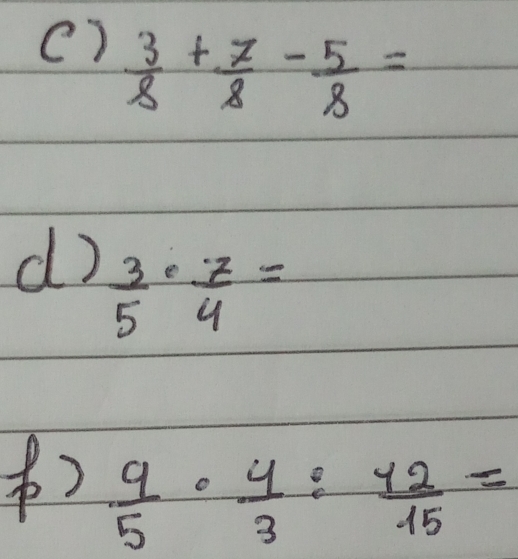 c) 3/8 + 7/8 - 5/8 =
d) 3/5 · 7/4 =
f) 9/5 · 4/3 : 12/15 =